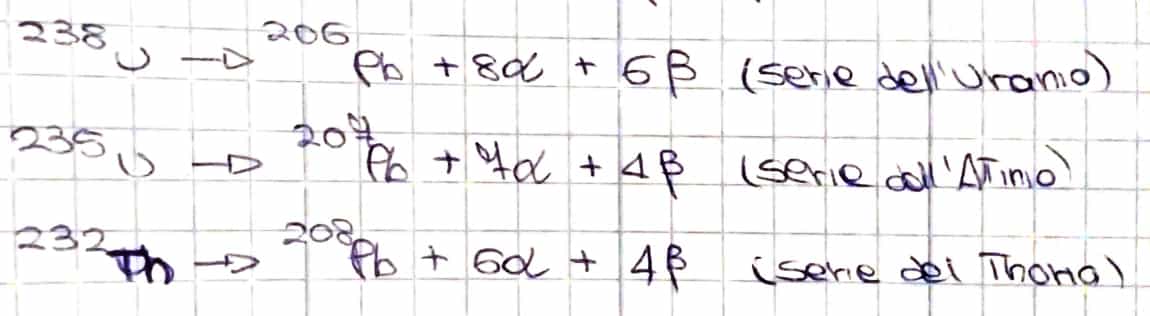 ²³⁸U → ²⁰⁶Pb + 8α + 6β (serie dell'Uranio)
²³⁵U → ²⁰⁷Pb + 7α + 4β (serie dell'ATinio)
²³²Th → ²⁰⁸Pb + 6α + 4β (serie del Thorio)